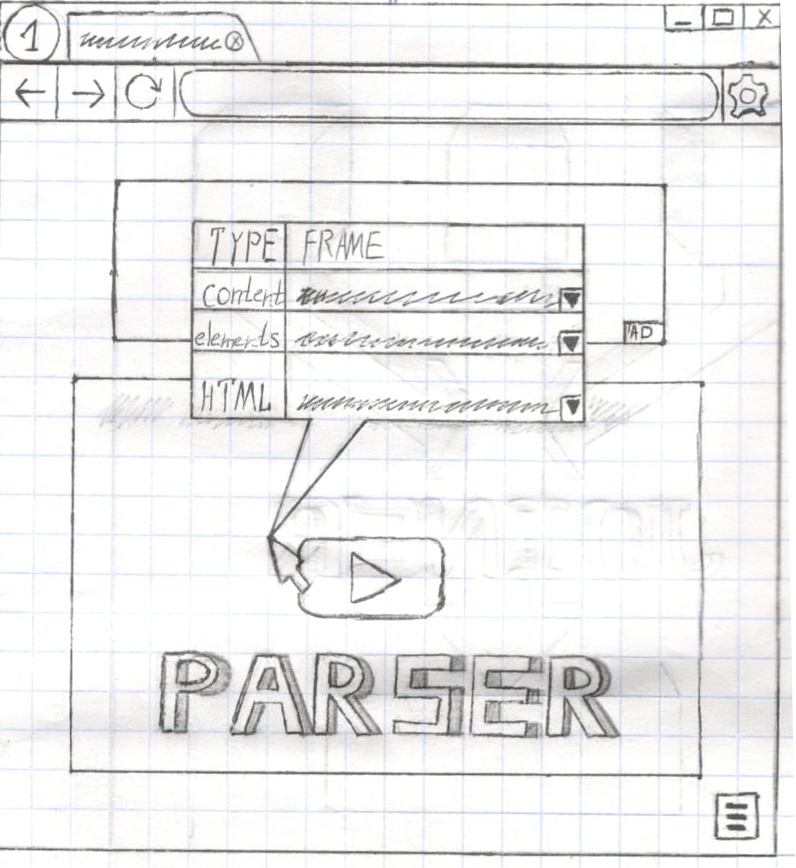 1
TYPE FRAME
content
elements
AD
HTML
PARSER